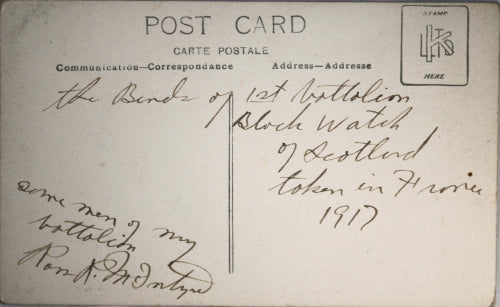 POST CARD
CARTE POSTALE
Communication—Correspondence Address—Addresse
STAMP
HERE
the Band of 1st battalion
Black Watch
of Scotland
taken in France
1917
some men of my
battalion
Ross R. McIntyre